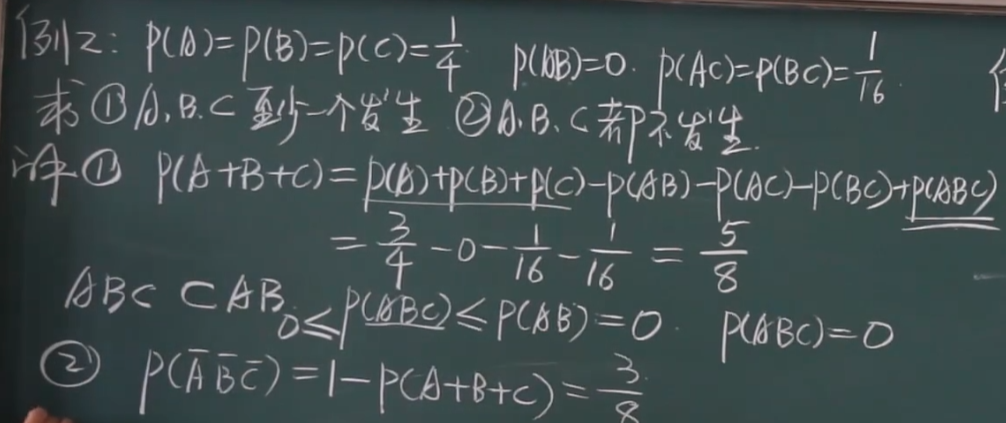 例2: P(A)=P(B)=P(C)=1/4 P(AB)=0. P(AC)=P(BC)=1/16.
求①A.B.C至少一个发生 ②A.B.C都不发生.
解① P(A+B+C)=P(A)+P(B)+P(C)-P(AB)-P(AC)-P(BC)+P(ABC)
=3/4-0-1/16-1/16=5/8
ABC⊂AB 0≤P(ABC)≤P(AB)=0. P(ABC)=0
② P(A̅ B̅ C̅)=1-P(A+B+C)=3/8